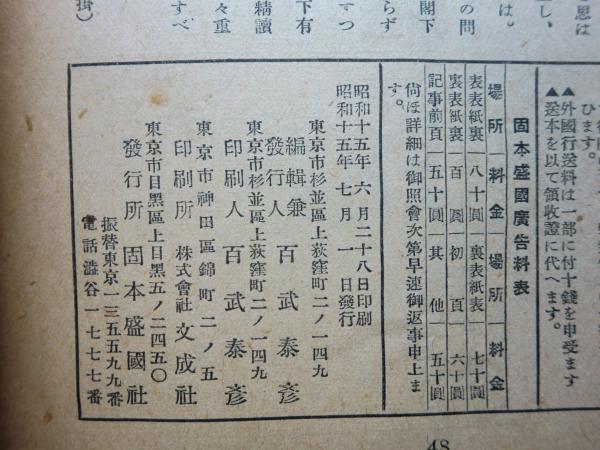 思は
し、
は。
の問
閣下
らず
すつ
下有
精讀
々重
すべ
掛)
ひます。
▲外國行送料は一部に付十錢を申受ます
▲送本を以て領收證に代へます。
固本盛國廣告料表
場所 料金 場所 料金
表表紙裏 八十圓 裏表紙表 七十圓
裏表紙裏 百圓 初頁 六十圓
記事前頁 五十圓 其他 五十圓
尙ほ詳細は御照會次第早速御返事申上ま
す。
昭和十五年六月二十八日印刷
昭和十五年七月一日發行
東京市杉並區上荻窪町二ノ一四九
編輯兼
發行人 百武泰彥
東京市杉並區上荻窪町二ノ一四九
印刷人 百武泰彥
東京市神田區錦町二ノ五
印刷所 株式會社文成社
東京市目黑區上目黑五ノ二四五〇
發行所 固本盛國社
振替東京一三五五九九番
電話澁谷一七七七番
48